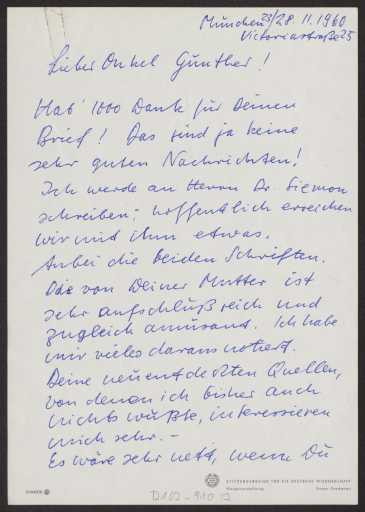 München 23/28 11.1960
Victoriastraße 25
Lieber Onkel Günther!
Hab' 1000 Dank für Deinen
Brief! Das sind ja keine
sehr guten Nachrichten!
Ich werde an Herrn Dr. Siemon
schreiben; hoffentlich erreichen
wir mit ihm etwas.
Anbei die beiden Schriften.
Die von Deiner Mutter ist
sehr aufschlußreich und
zugleich amüsant. Ich habe
mir vieles daraus notiert.
Deine neuentdeckten Quellen,
von denen ich bisher auch
nichts wußte, interessieren
mich sehr. –
Es wäre sehr nett, wenn Du
STIFTERVERBAND FÜR DIE DEUTSCHE WISSENSCHAFT